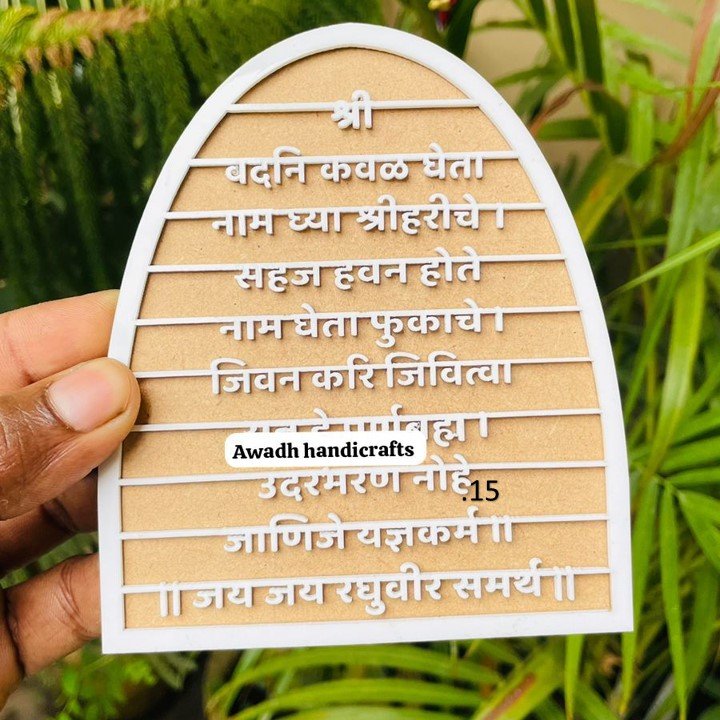 श्री
वदनि कवळ घेता
नाम घ्या श्रीहरीचे ।
सहज हवन होते
नाम घेता फुकाचे ।
जिवन करि जिवित्वा
हे पूर्णब्रह्म ।
Awadh handicrafts
उदरभरण नोहे
.15
जाणिजे यज्ञकर्म ॥
॥ जय जय रघुवीर समर्थ ॥